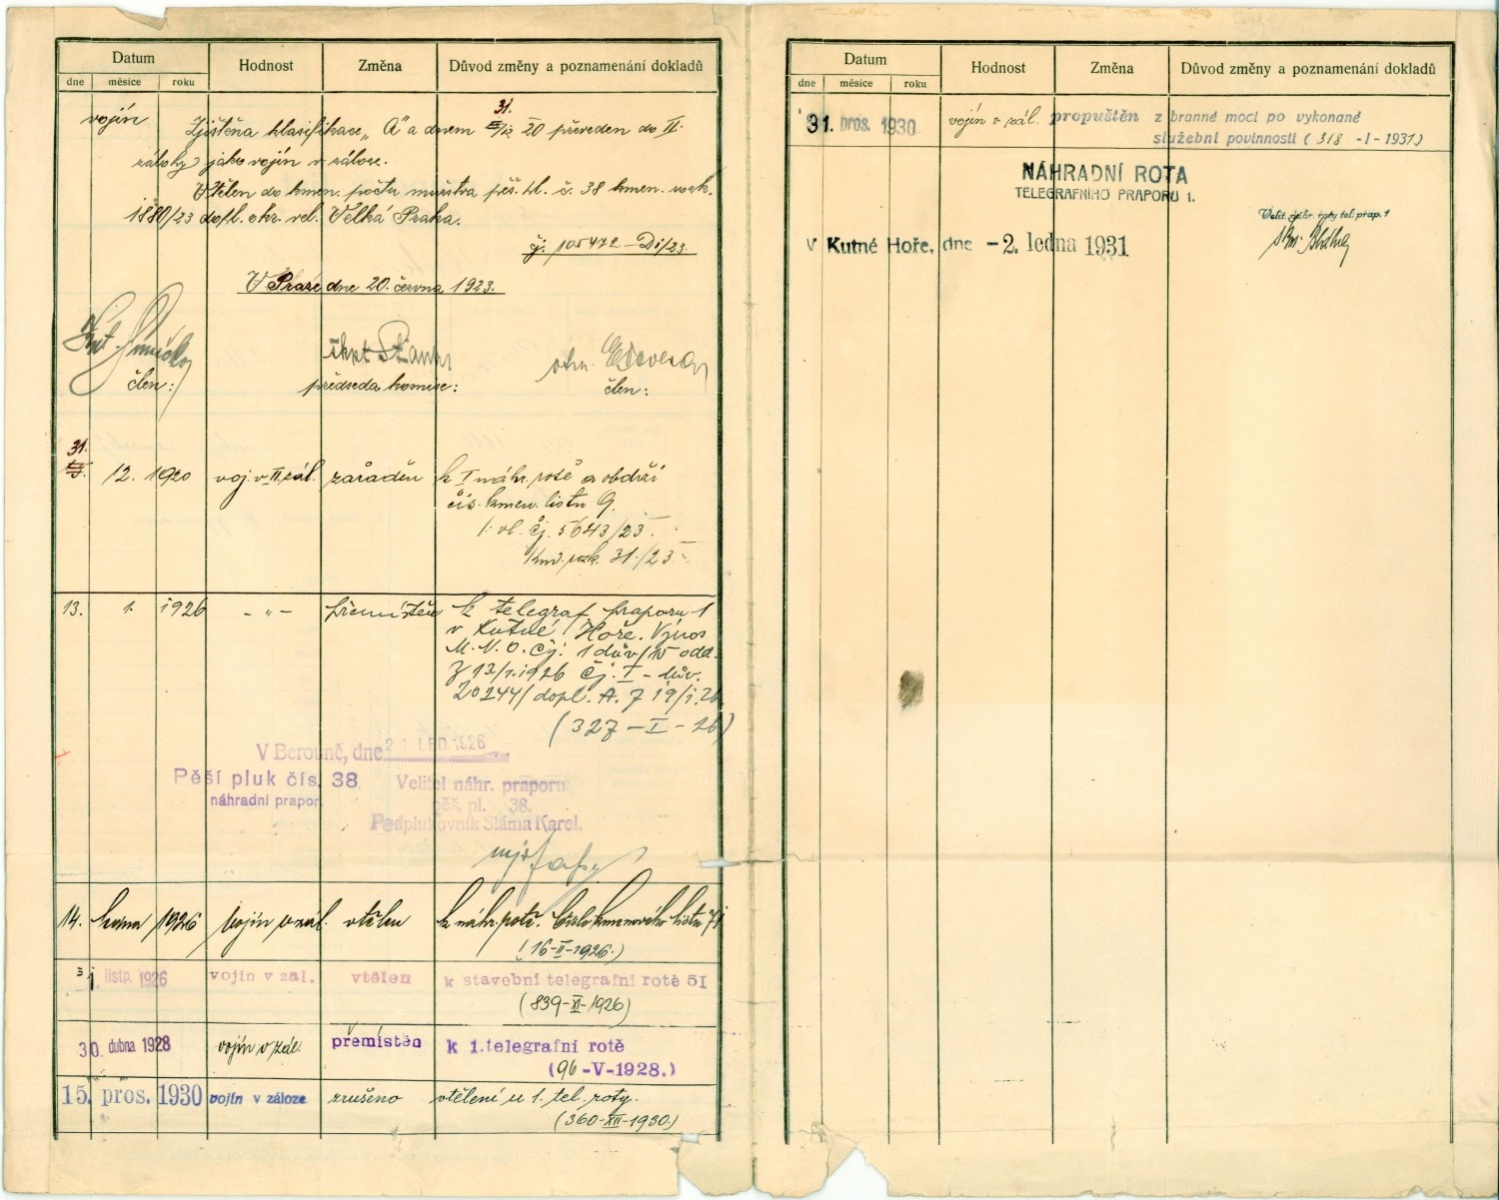 Datum Hodnost Změna Důvod změny a poznamenání dokladů
dne měsíce roku
vojín
31.
Zjištěna klasifikace „A" a dnem XII 20 převeden do II.
zálohy jako vojín v záloze.
Vtělen do kmen. počtu mužstva pěš. pl. č. 38 kmen. výk.
1880/23 dopl. okr. vel. Velká Praha.
čj. 105472 – Di/23.
V Praze dne 20. června 1923.
člen: předseda komise: člen:
31.
12. 1920 voj. v II. zál. zařaděn k I náhr. rotě a obdrží
čís. kmen. listu 9.
čj. 5643/23
31/23
13. 1. 1926 – „ – přemístěn k telegraf praporu 1
v Kutné Hoře. Výnos
M.N.O. čj: 1 dův/15 odd.
z 13/1.1926 čj. I – dův.
20244/dopl. A. z 19/1.26
(327 – I – 26)
V Berouně, dne 21 LED. 1926
Pěší pluk čís. 38. Velitel náhr. praporu
náhradní prapor. pěš. pl. 38.
Podplukovník Sláma Karel.
14. ledna 1926 vojín v zál. vtělen k náhr. rotě. Číslo kmenového listu 71
(16-II-1926.)
31. listp. 1926 vojín v zál. vtělen k stavební telegrafní rotě 51
(839-XI-1926)
30. dubna 1928 vojín v zál. přemístěn k 1. telegrafní rotě
(96 -V-1928.)
15. pros. 1930 vojín v záloze zrušeno vtělení u 1. tel. roty.
(360-XII-1930.)
Datum Hodnost Změna Důvod změny a poznamenání dokladů
dne měsíce roku
31. pros. 1930 vojín v zál. propuštěn z branné moci po vykonané
služební povinnosti (318 -I-1931)
NÁHRADNÍ ROTA
TELEGRAFNÍHO PRAPORU 1.
Velit. náhr. roty tel. prap. 1
V Kutné Hoře, dne -2. ledna 1931